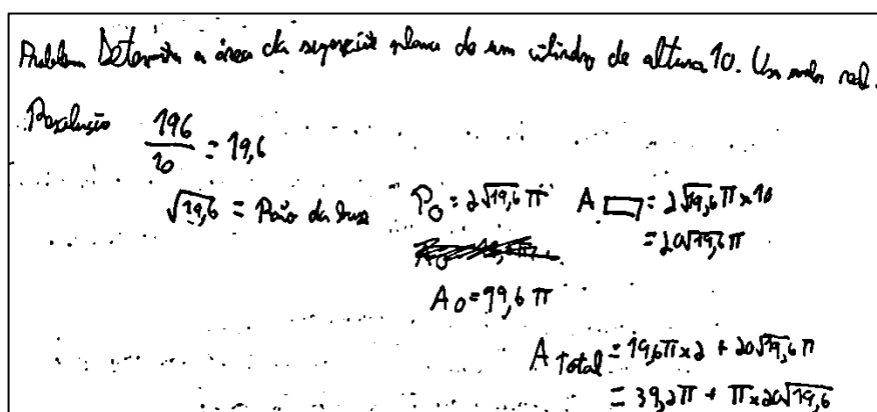 Problema Determina a área da superfície plana de um cilindro de altura 10. Usa
Resolução
196/10 = 19,6
√19,6 = Raio da base
P○ = 2√19,6 π
A▭ = 2√19,6 π×10
= 20√19,6 π
A○ = 19,6 π
A Total = 19,6π×2 + 20√19,6 π
= 39,2π + π×20√19,6